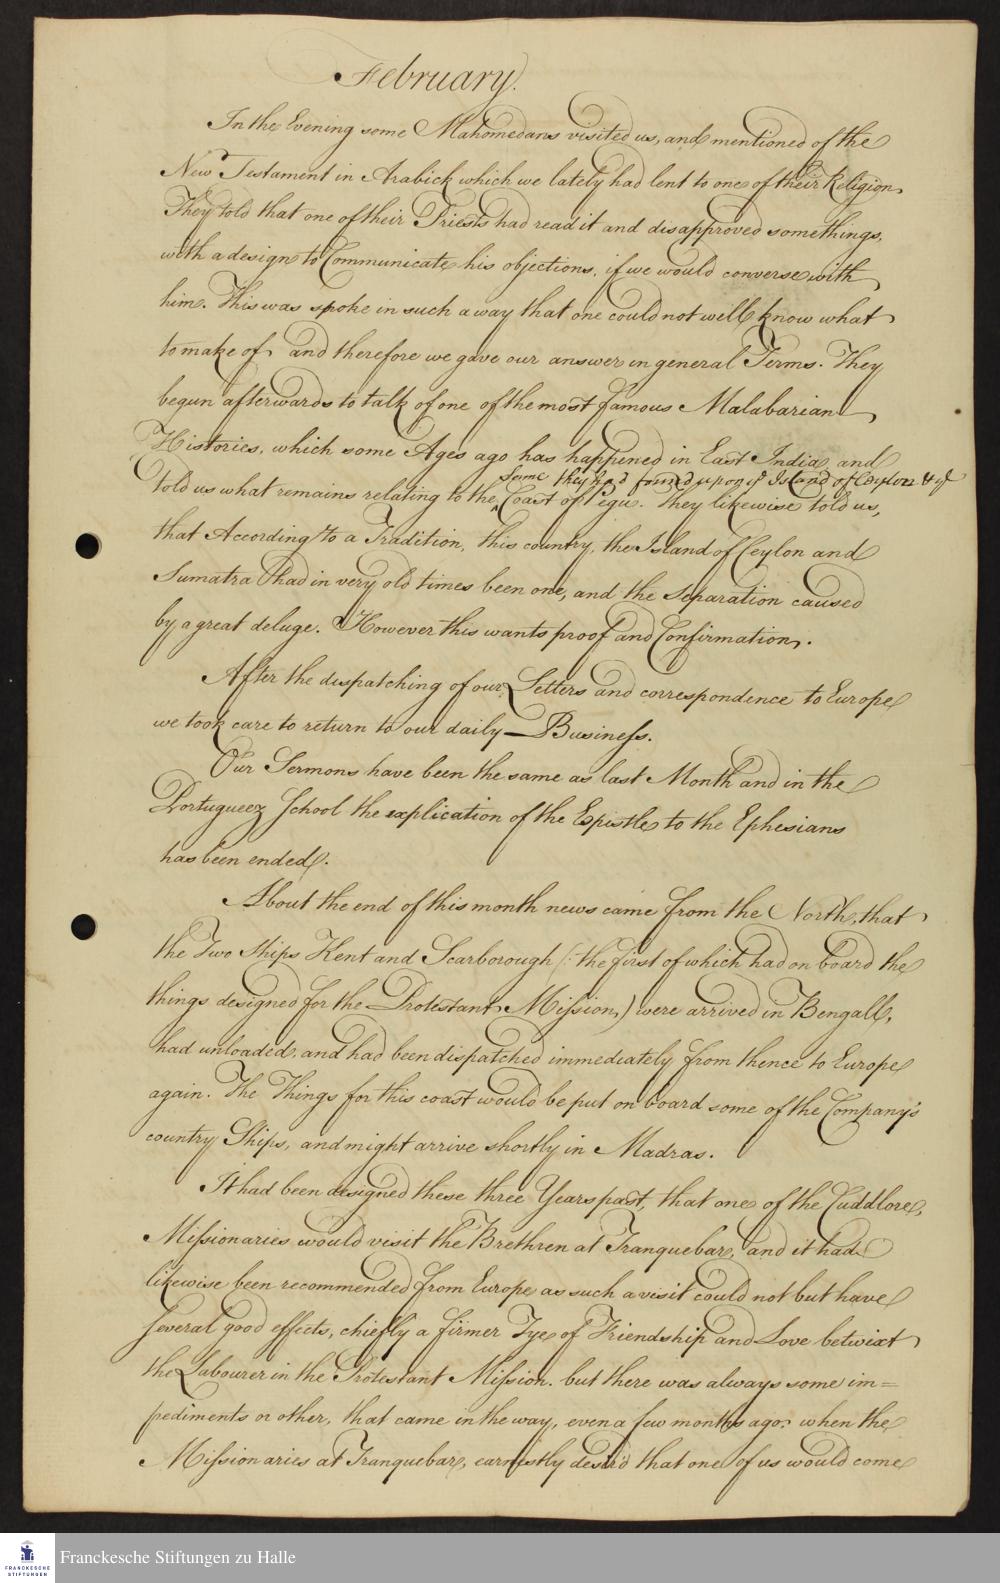 February.
In the Evening some Mahomedans visited us, and mentioned of the
New Testament in Arabick which we lately had lent to one of their Religion.
They told that one of their Priests had read it and disapproved somethings,
with a design to Communicate his objections, if we would converse with
him. This was spoke in such a way that one could not well know what
to make of, and therefore we gave our answer in general Terms. They
begun afterwards to talk of one of the most famous Malabarian
Histories, which some Ages ago has happened in East India, and
Same they had found upon ye Island of Ceylon & ye
told us what remains relating to the ^ Coast of Pegu. They likewise told us,
that According to a Tradition, this country, the Island of Ceylon and
Sumatra had in very old times been one, and the Separation caused
by a great deluge. However this wants proof and Confirmation.
After the dispatching of our Letters and correspondence to Europe
we took care to return to our daily Business.
Our Sermons have been the same as last Month and in the
Portugueez School the explication of the Epistle to the Ephesians
has been ended.
About the end of this month news came from the North, that
the Two Ships Kent and Scarborough (: the first of which had on board the
things designed for the Protestant Mission,) were arrived in Bengall,
had unloaded, and had been dispatched immediately from thence to Europe
again. The Things for this coast would be put on board some of the Company's
country Ships, and might arrive shortly in Madras.
It had been designed these three Years past, that one of the Cuddlore,
Missionaries would visit the Brethren at Tranquebar, and it had
likewise been recommended from Europe as such a visit could not but have
several good effects, chiefly a firmer Tye of Friendship and Love betwixt
the Labourer in the Protestant Mission. but there was always some im=
pediments or other, that came in the way, even a few months ago, when the
Missionaries at Tranquebar, earnestly desir'd that one of us would come
FRANCKESCHE
STIFTUNGEN
Franckesche Stiftungen zu Halle